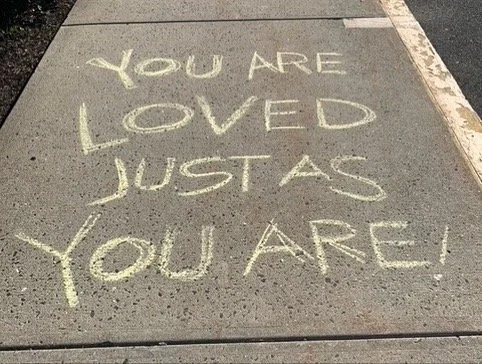 YOU ARE
LOVED
JUST AS
YOU ARE!